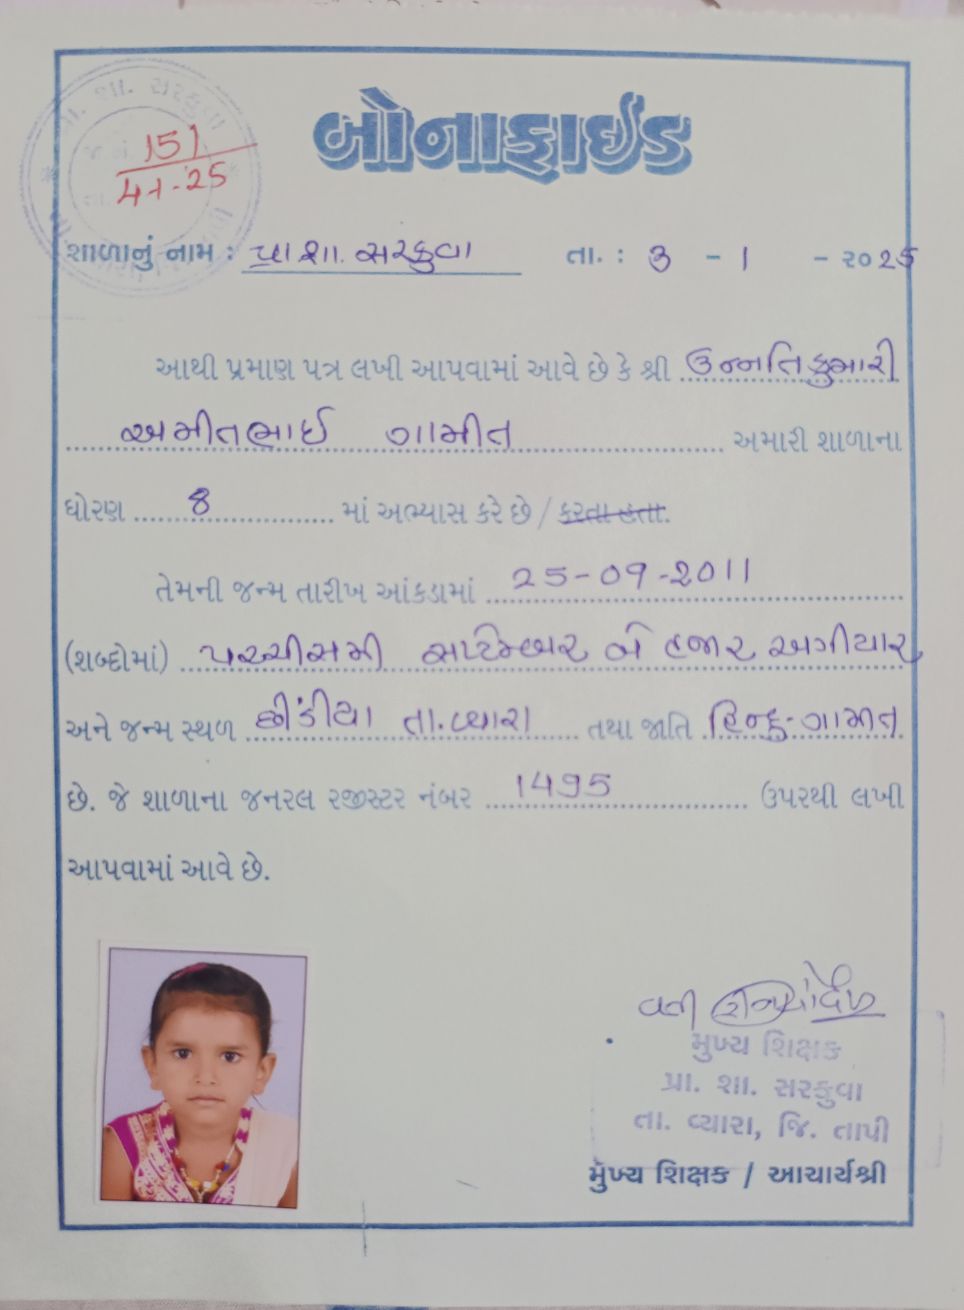 બોનાફાઈડ
પ્રા. શા. સરકુવા
151
4-1-25
શાળાનું નામ : પ્રા શા. સરકુવા તા. : 3 - 1 - ૨૦25
આથી પ્રમાણ પત્ર લખી આપવામાં આવે છે કે શ્રી ઉન્નતિકુમારી
અમીતભાઈ ગામીત અમારી શાળાના
ધોરણ 8 માં અભ્યાસ કરે છે / કરતા હતા.
તેમની જન્મ તારીખ આંકડામાં 25-09-2011
(શબ્દોમાં) પચ્ચીસમી સપ્ટેમ્બાર બે હજાર અગીયાર
અને જન્મ સ્થળ છીંડીયા તા.વ્યારા તથા જાતિ હિન્દુ-ગામીત
છે. જે શાળાના જનરલ રજીસ્ટર નંબર 1495 ઉપરથી લખી
આપવામાં આવે છે.
વતી
મુખ્ય શિક્ષક
પ્રા. શા. સરકુવા
તા. વ્યારા, જિ. તાપી
મુખ્ય શિક્ષક / આચાર્યશ્રી